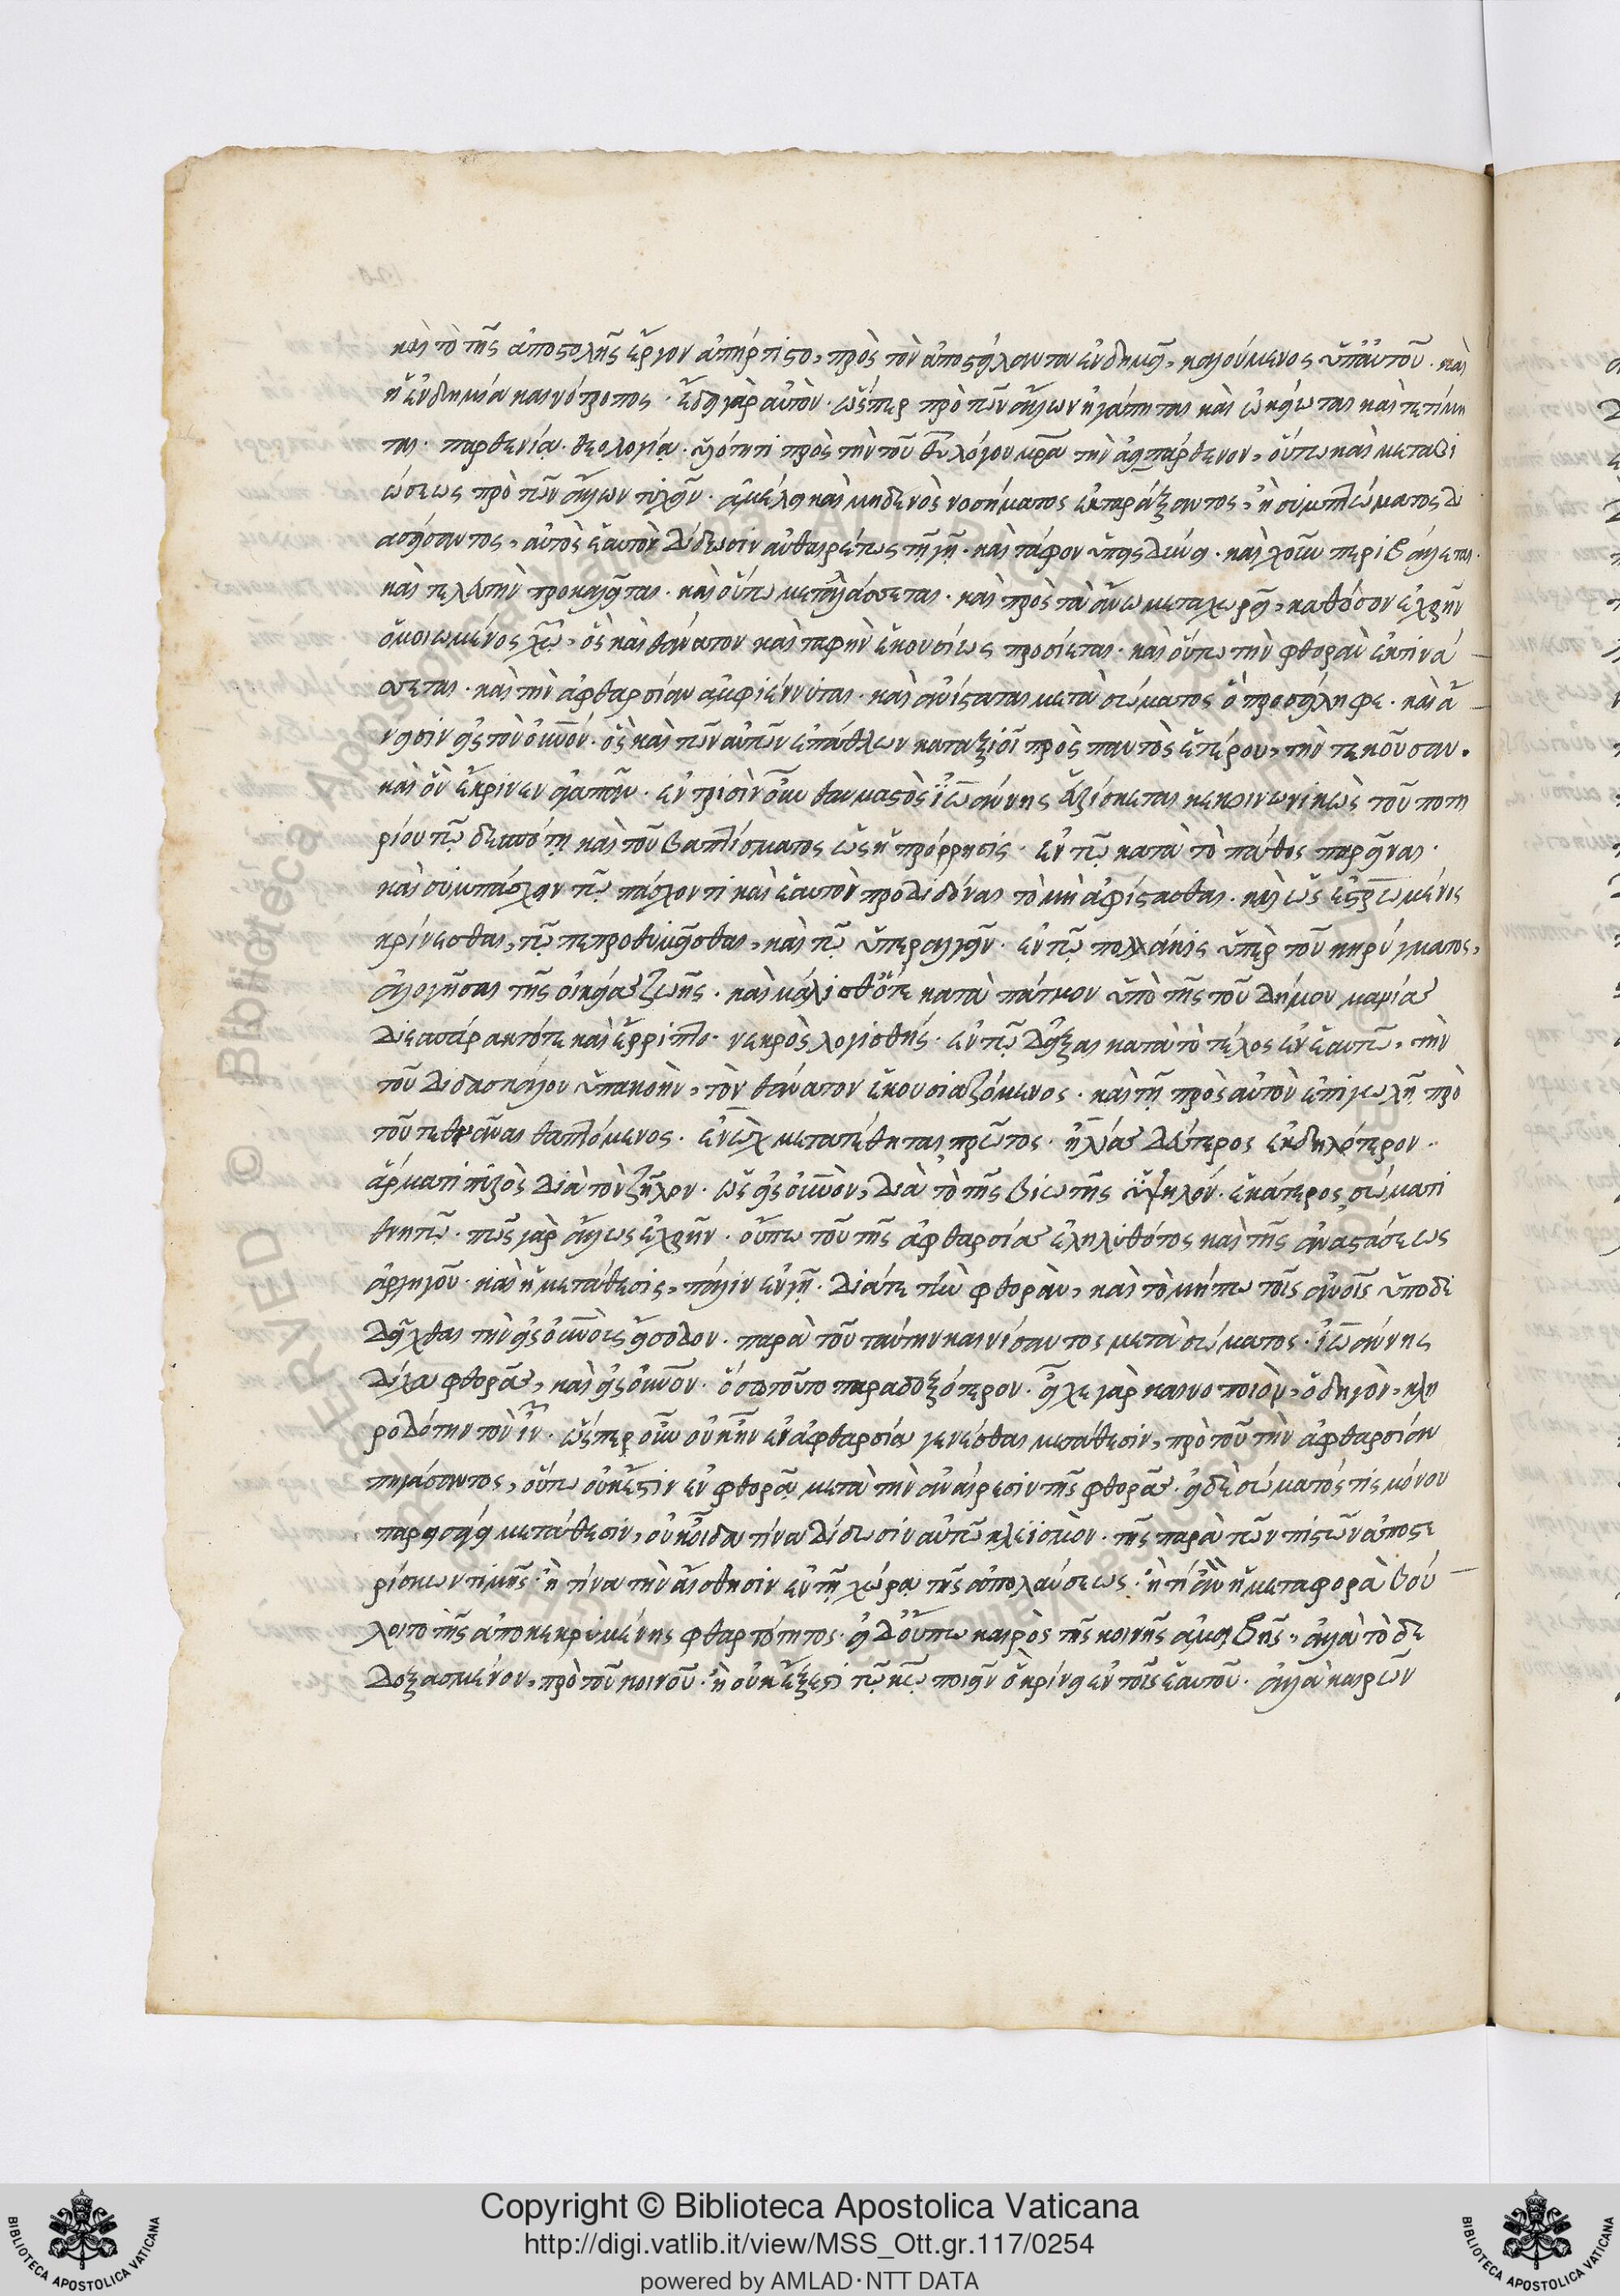 καὶ τὸ τῆς ἀποστολῆς ἔργον ἀπήρτιστο, πρὸς τὸν ἀποστείλαντα ἐνδημεῖ, καλούμενος ὑπ' αὐτοῦ. καὶ
ἡ ἐνδημία καινότροπος. ἔδει γὰρ αὐτὸν. ὥσπερ πρὸ τῶν ἄλλων ἠγάπηται καὶ ὠκείωται καὶ τετίμη
ται. παρθενία. θεολογία. υἱότητι πρὸς τὴν τοῦ θυ λόγου μρα τὴν ἀειπάρθενον, οὕτω καὶ μεταβι
ώσεως πρὸ τῶν ἄλλων τυχεῖν. ἀμέλει καὶ μηδενὸς νοσήματος ἐκταράξαντος, ἢ συμπτώματος δι
ασείσαντος, αὐτὸς ἑαυτὸν δίδωσιν αὐθαιρέτως τῇ γῇ. καὶ τάφον ὑπεισδύνει. καὶ χοῦν περιβάλλεται.
καὶ τελετὴν προκαλεῖται. καὶ οὕτω μεταλλάσσεται. καὶ πρὸς τὰ ἄνω μεταχωρεῖ, καθόσον ἐχρῆν
ὁμοιωμένος χω, ὃς καὶ θάνατον καὶ ταφὴν ἑκουσίως προσίεται. καὶ οὕτω τὴν φθορὰν ἐκτινά
σσεται. καὶ τὴν ἀφθαρσίαν ἀμφιέννυται. καὶ ἀνίσταται μετὰ σώματος ὃ προσείληφε. καὶ ἄ
νεισιν εἰς τὸν οὐνόν. ὃς καὶ τῶν αὐτῶν ἐπάθλων καταξιοῖ πρὸς παντὸς ἑτέρου, τὴν τεκοῦσαν.
καὶ ὃν ἔκρινεν ἀγαπᾶν. ἐν τρισὶν οὖν θαυμαστὸς ἰωάννης ἐξίσχεται κεκοινωνικὼς τοῦ ποτη
ρίου τῷ δεσπότῃ καὶ τοῦ βαπτίσματος ὡς ἡ πρόρρησις. ἐν τῷ κατὰ τὸ πάθος παρεῖναι.
καὶ συμπάσχειν τῷ πάσχοντι καὶ ἑαυτὸν προδιδόναι τὸ μὴ ἀφίστασθαι. καὶ ὡς ἐσρωμένις
κρίνεσθαι, τῷ πεπροθυμεῖσθαι, καὶ τῷ ὑπεραλγεῖν. ἐν τῷ πολλάκις ὑπὲρ τοῦ κηρύγματος,
ἀλογῆσαι τῆς οἰκείας ζωῆς. καὶ μάλισθ' ὅτε κατὰ πάτμον ὑπὸ τῆς τοῦ δήμου μανίας
διεσπάρακτό τε καὶ ἔρριπτο. νεκρὸς λογισθείς. ἐν τῷ δεῖξαι κατὰ τὸ τέλος ἐν ἑαυτῷ, τὴν
τοῦ διδασκάλου ὑπακοὴν, τὸν θάνατον ἑκουσιαζόμενος. καὶ τῇ πρὸς αὐτὸν ἐπιμολῇ πρὸ
τοῦ τεθνᾶναι θαπτόμενος. ἐνὼχ μετατέθηται πρῶτος. ἠλίας δεύτερος ἐκδηλότερον.
ἅρματι πυρὸς διὰ τὸν ζῆλον. ὡς εἰς οὐνὸν, διὰ τὸ τῆς βιωτῆς ὑψηλόν. ἑκάτερος σώματι
θνητῷ. πῶς γὰρ ἄλλως ἐχρῆν. οὔπω τοῦ τῆς ἀφθαρσίας ἐληλυθότος καὶ τῆς ἀναστάσεως
ἀρχηγοῦ. καὶ ἡ μετάθεσις, πάλιν ἐν γῇ. διά τε τὴν φθορὰν, καὶ τὸ μήπω τοῖς ἀνοῖς ὑποδε
δεῖχθαι τὴν εἰς οὐνοὺς εἴσοδον. παρὰ τοῦ ταύτην καινίσαντος μετὰ σώματος. ἰωάννης
δίχα φθορᾶς, καὶ εἰς οὐνόν. ὅσω τοῦτο παραδοξότερον. εἶχε γὰρ καινοποιὸν, ὁδηγὸν, κλη
ροδότην τὸν ιν. ὥσπερ οὖν οὐκ ἦν ἐν ἀφθαρσία γενέσθαι μετάθεσιν, πρὸ τοῦ τὴν ἀφθαρσίαν
πηγάσαντος, οὕτω οὐκ ἔστιν ἐν φθορᾷ μετὰ τὴν ἀναίρεσιν τῆς φθορᾶς. εἰ δὲ σώματός τις μόνου
παρεισάγει μετάθεσιν, οὐκ οἶδα τίνα δίδωσιν αὐτῷ κλεϊσμὸν. τῆς παρὰ τῶν πιστῶν ἀποστε
ρίσκων τιμῆς. ἢ τίνα τὴν αἴσθησιν ἐν τῇ χώρᾳ τῆς ἀπολαύσεως. ἢ τί ἂν ἡ μεταφορὰ βού
λοιτο τῆς ἀποκεκριμένης φθαρτότητος. εἰ δ' οὔπω καιρὸς τῆς κοινῆς ἀμοιβῆς, ἀλλὰ τὸ δε
δοξασμένον, πρὸ τοῦ κοινοῦ. ἢ οὐκ ἔξεστι τῷ κω ποιεῖν ὃ κρίνει ἐν τοῖς ἑαυτοῦ. ἀλλὰ καιρῶν
Copyright © Biblioteca Apostolica Vaticana
http://digi.vatlib.it/view/MSS_Ott.gr.117/0254
powered by AMLAD·NTT DATA
BIBLIOTECA APOSTOLICA VATICANA
BIBLIOTECA APOSTOLICA VATICANA